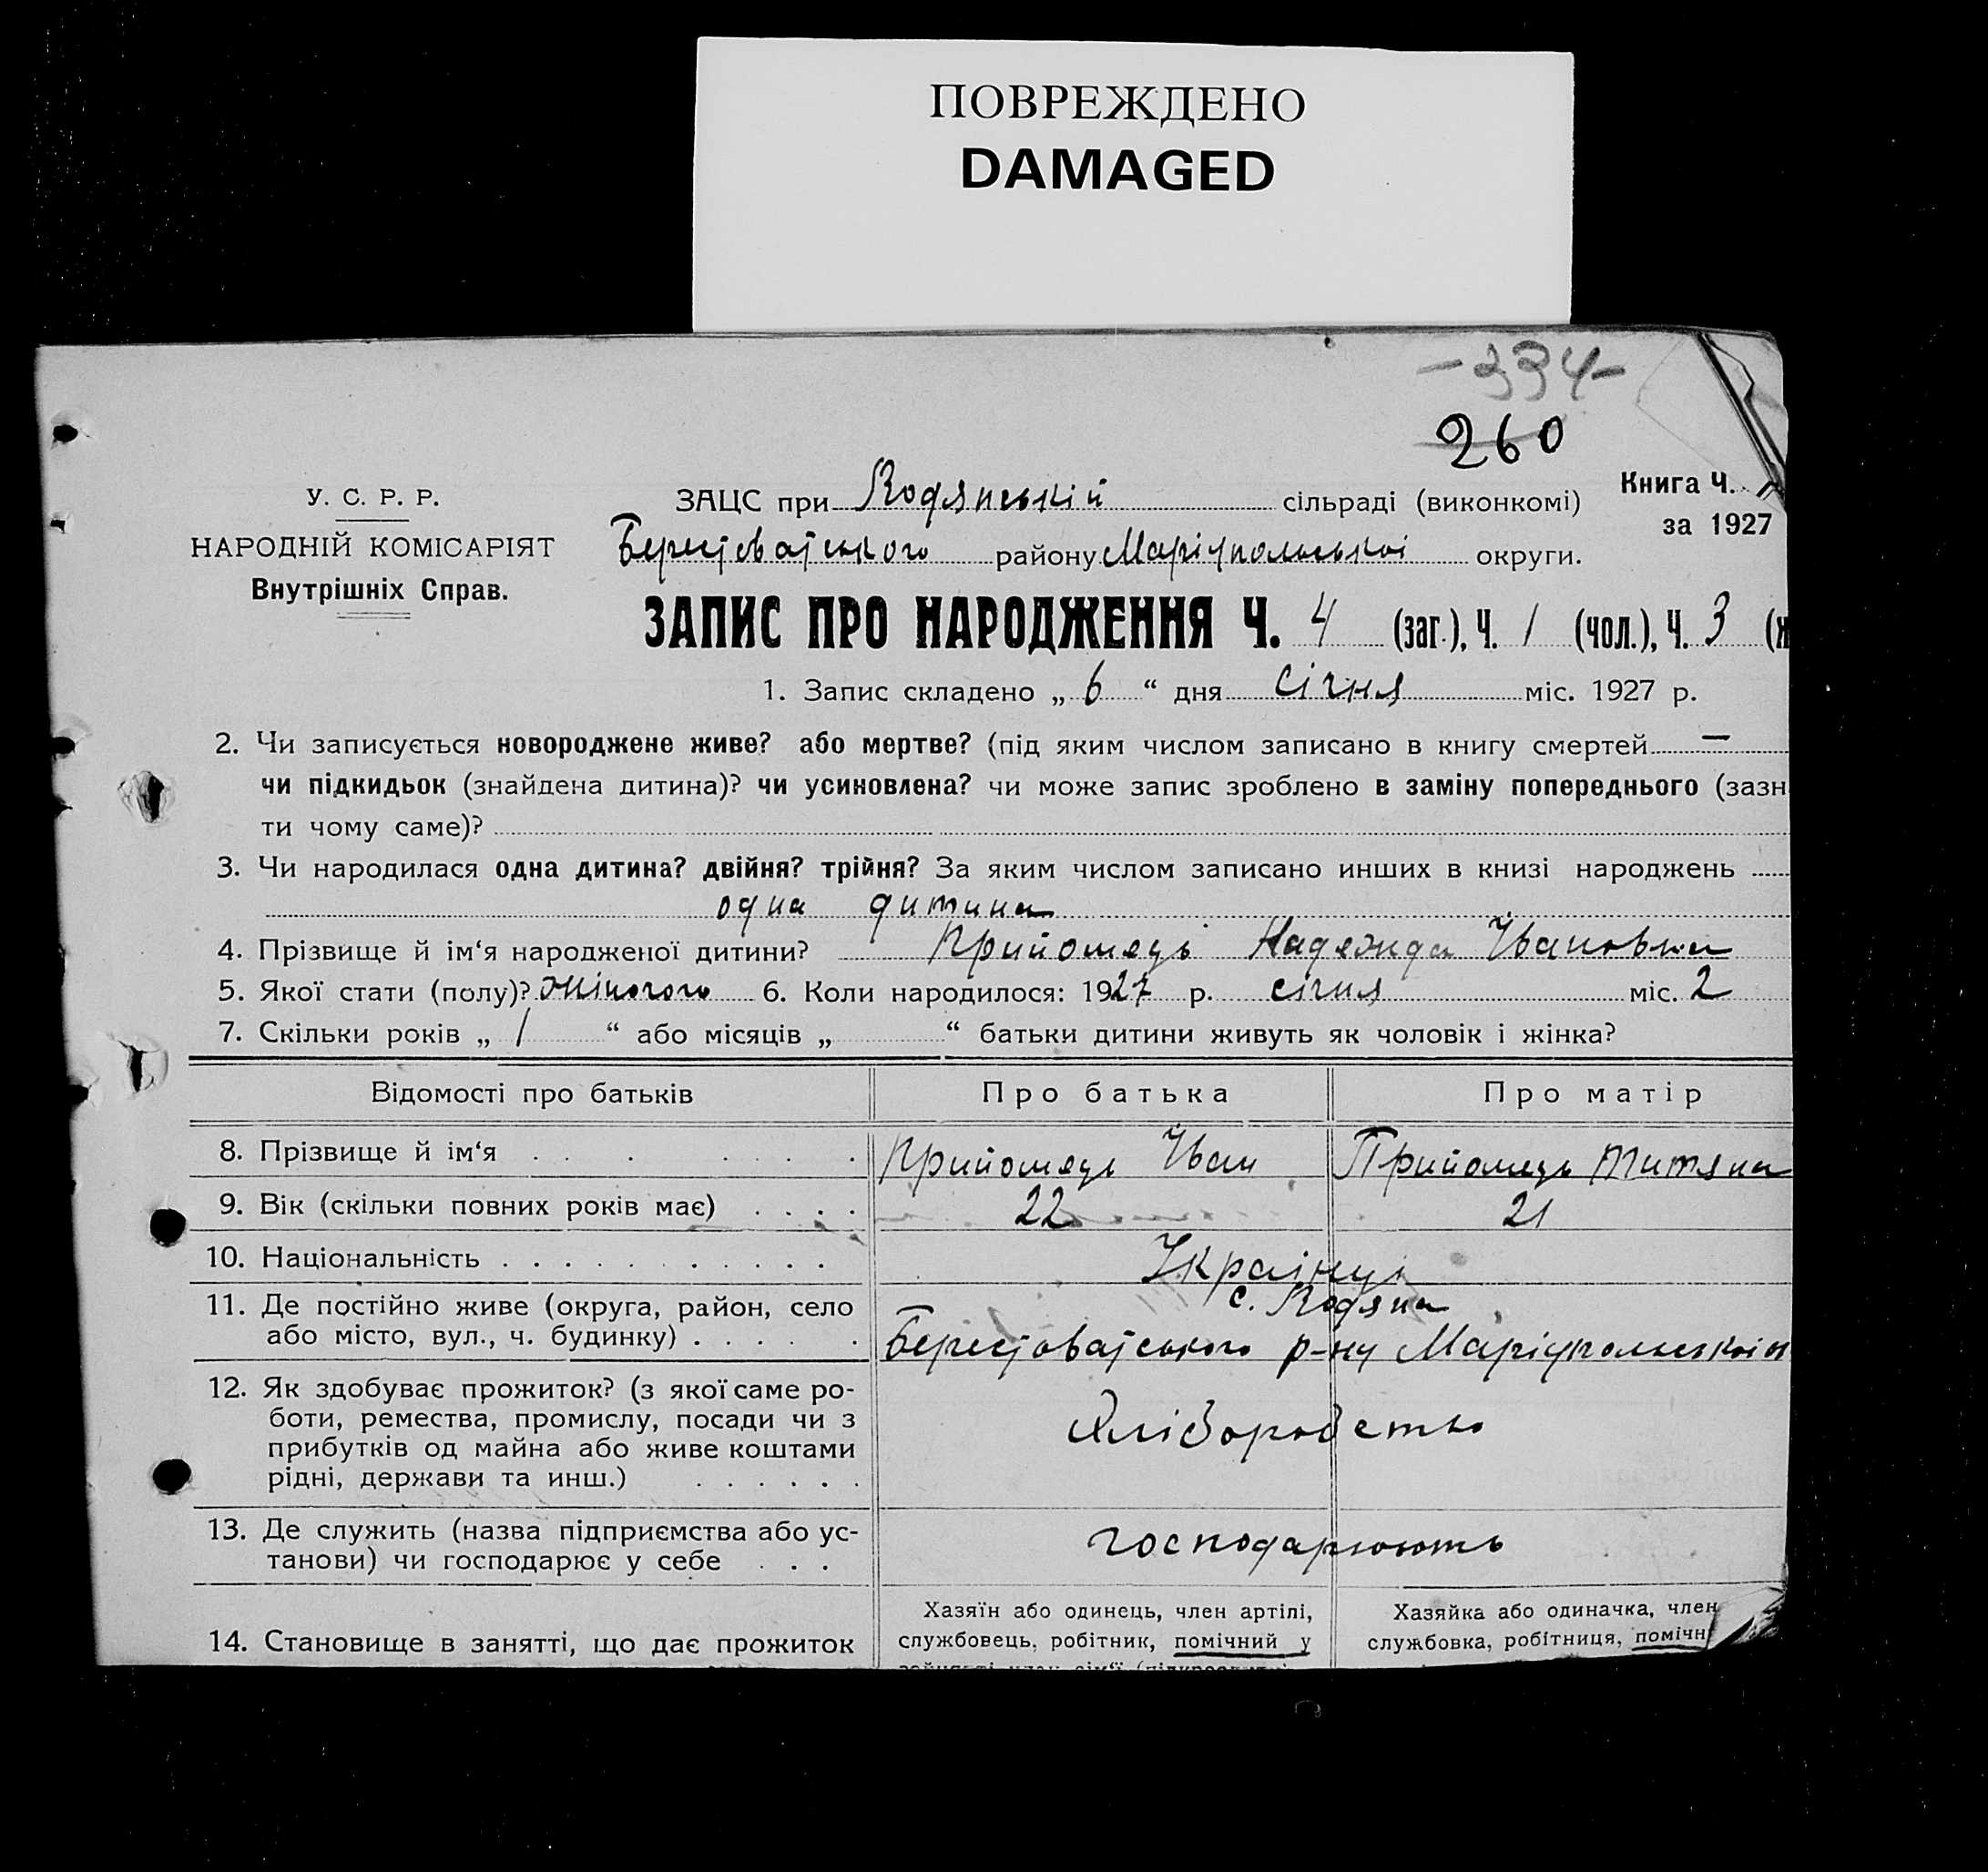 ПОВРЕЖДЕНО
DAMAGED
-334-
260
У. С. Р. Р.
НАРОДНІЙ КОМІСАРІЯТ
Внутрішніх Справ.
ЗАЦС при Водянській сільраді (виконкомі)
Берестоватського району Маріупольської округи.
Книга Ч.
за 1927
ЗАПИС ПРО НАРОДЖЕННЯ Ч. 4 (заг.), Ч. 1 (чол.), Ч. 3 (ж
1. Запис складено „ 6 “ дня січня міс. 1927 р.
2. Чи записується новороджене живе? або мертве? (під яким числом записано в книгу смертей —
чи підкидьок (знайдена дитина)? чи усиновлена? чи може запис зроблено в заміну попереднього (зазн
ти чому саме)?
3. Чи народилася одна дитина? двійня? трійня? За яким числом записано инших в книзі народжень
одна дитина
4. Прізвище й ім‘я народженої дитини? Прийомець Надежда Івановна
5. Якої стати (полу)? жіночого 6. Коли народилося: 1927 р. січня міс. 2
7. Скільки років „ 1 “ або місяців „ “ батьки дитини живуть як чоловік і жінка?
Відомості про батьків Про батька Про матір
8. Прізвище й ім‘я Прийомець Іван Прийомець Титяна
9. Вік (скільки повних років має) 22 21
10. Національність Україеці
11. Де постійно живе (округа, район, село
або місто, вул., ч. будинку)
с. Водяна
Берестоватського р-ну Маріупольської
12. Як здобуває прожиток? (з якої саме ро-
боти, ремества, промислу, посади чи з
прибутків од майна або живе коштами
рідні, держави та инш.)
Хліборобство
13. Де служить (назва підприємства або ус-
танови) чи господарює у себе
господарюють
14. Становище в занятті, що дає прожиток
Хазяїн або одинець, член артілі,
службовець, робітник, помічний у
Хазяйка або одиначка, член
службовка, робітниця, помічн